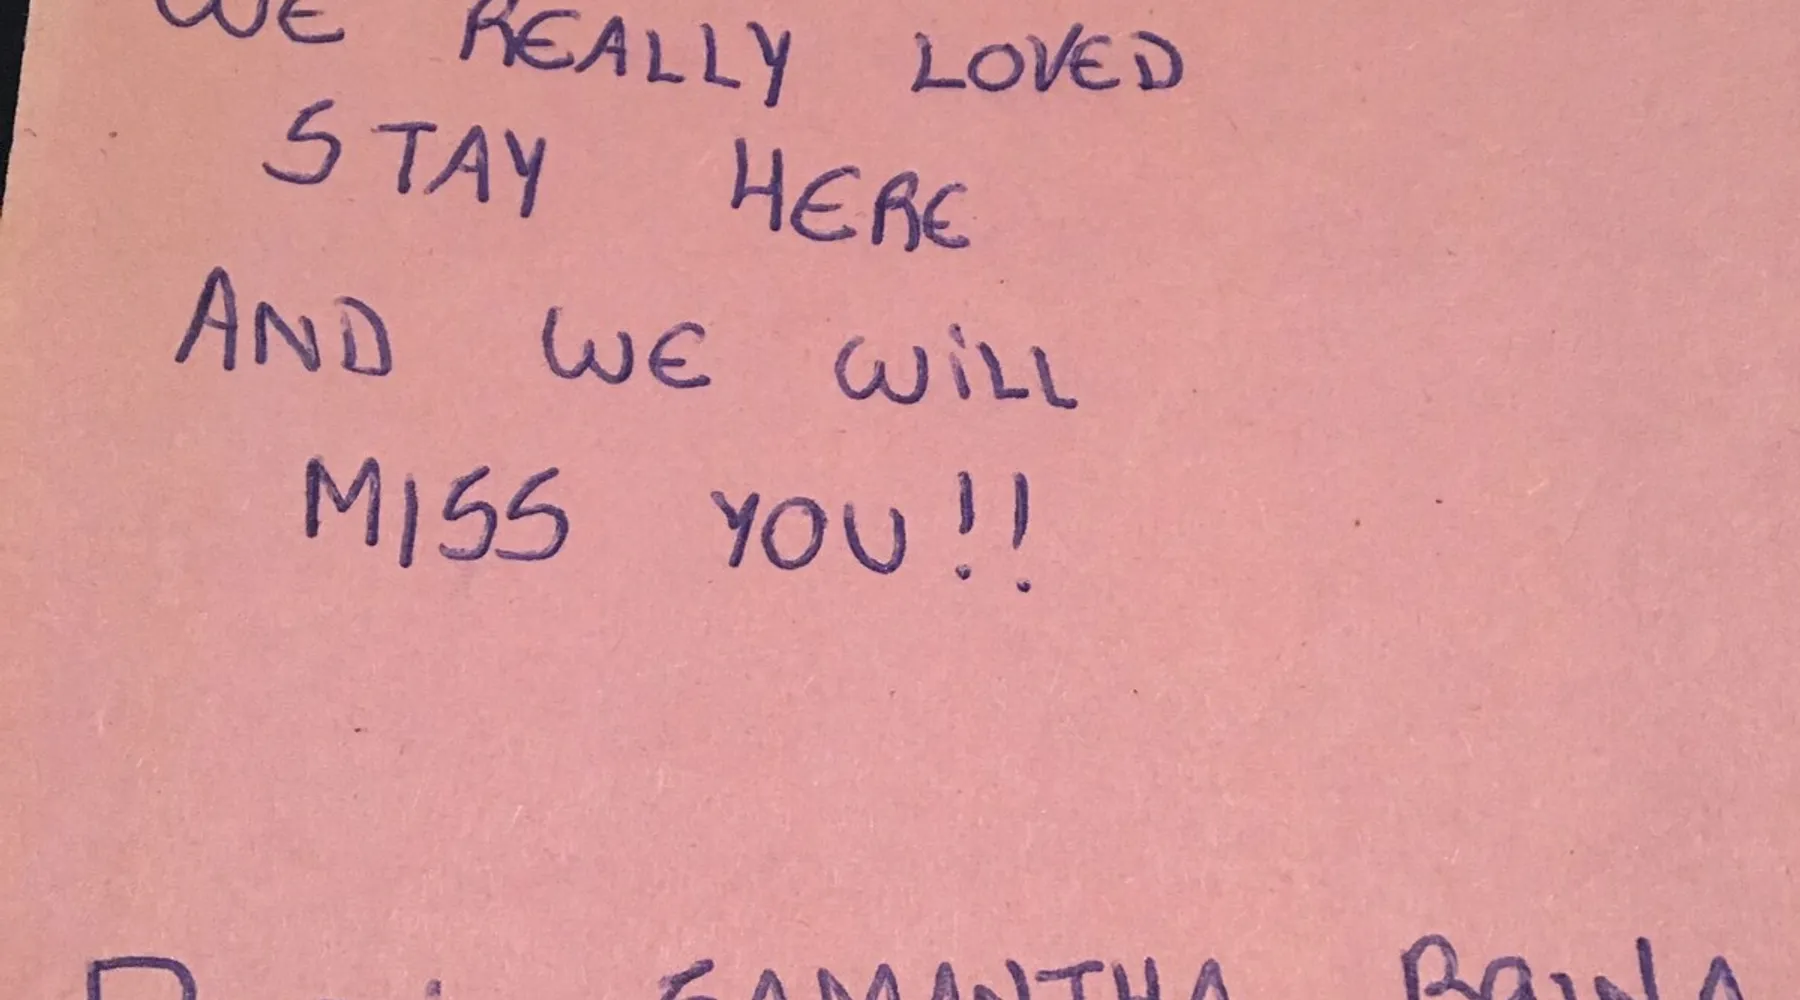 WE REALLY LOVED
STAY HERE
AND WE WiLL
MISS YOU!!
SAMANTHA